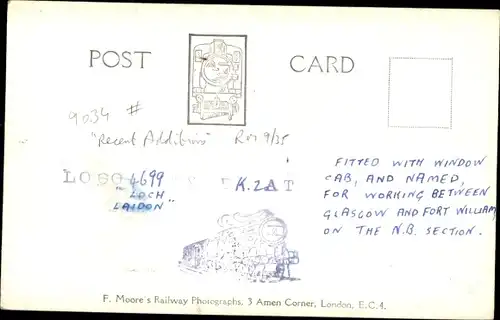 POST CARD
9034 #
"Recent Additions" Rm 9/35
4699 K.2
"LOCH
LAIDON"
FITTED WITH WINDOW
CAB, AND NAMED,
FOR WORKING BETWEEN
GLASGOW AND FORT WILLIAM,
ON THE N.B. SECTION.
F. Moore's Railway Photographs, 3 Amen Corner, London, E.C.4.